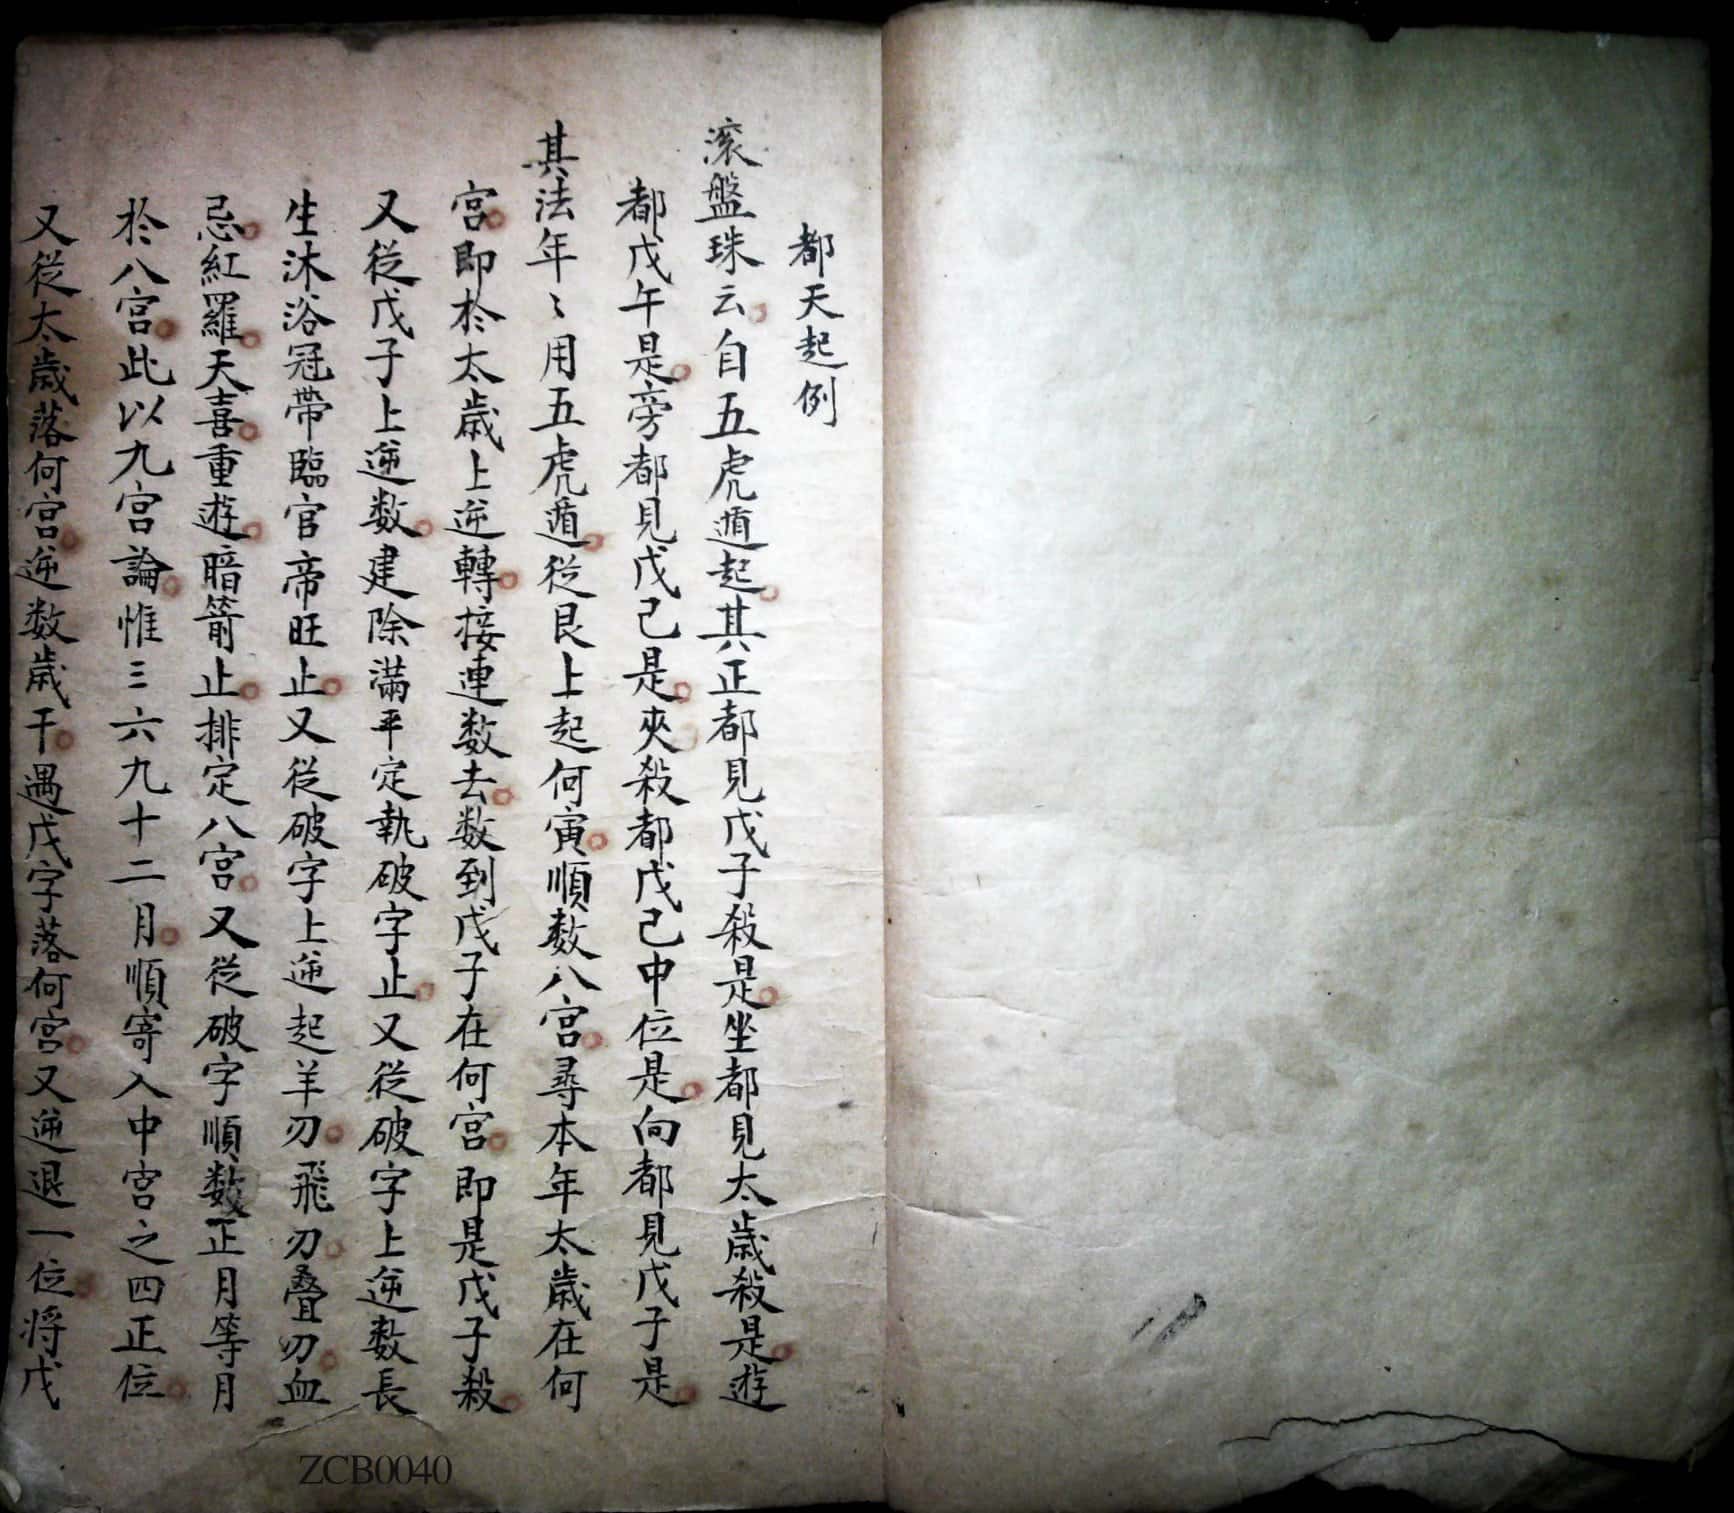 都天起例
滾盤珠云自五虎遁起其正都見戊子殺是坐都見太歲殺是遊
都戊午是旁都見戊己是夾殺都戊己中位是向都見戊子是
其法年〻用五虎遁從艮上起何寅順数八宮尋本年太歲在何
宮即於太歲上逆轉接連数去数到戊子在何宮即是戊子殺
又從戊子上逆数建除滿平定執破字止又從破字上逆数長
生沐浴冠帶臨官帝旺止又從破字上逆起羊刃飛刃叠刃血
忌紅羅天喜重遊暗箭止排定八宮又從破字順数正月等月
於八宮此以九宮論惟三六九十二月順寄入中宮之四正位
又從太歲落何宮逆数歲干遇戊字落何宮又逆退一位將戊
ZCB0040